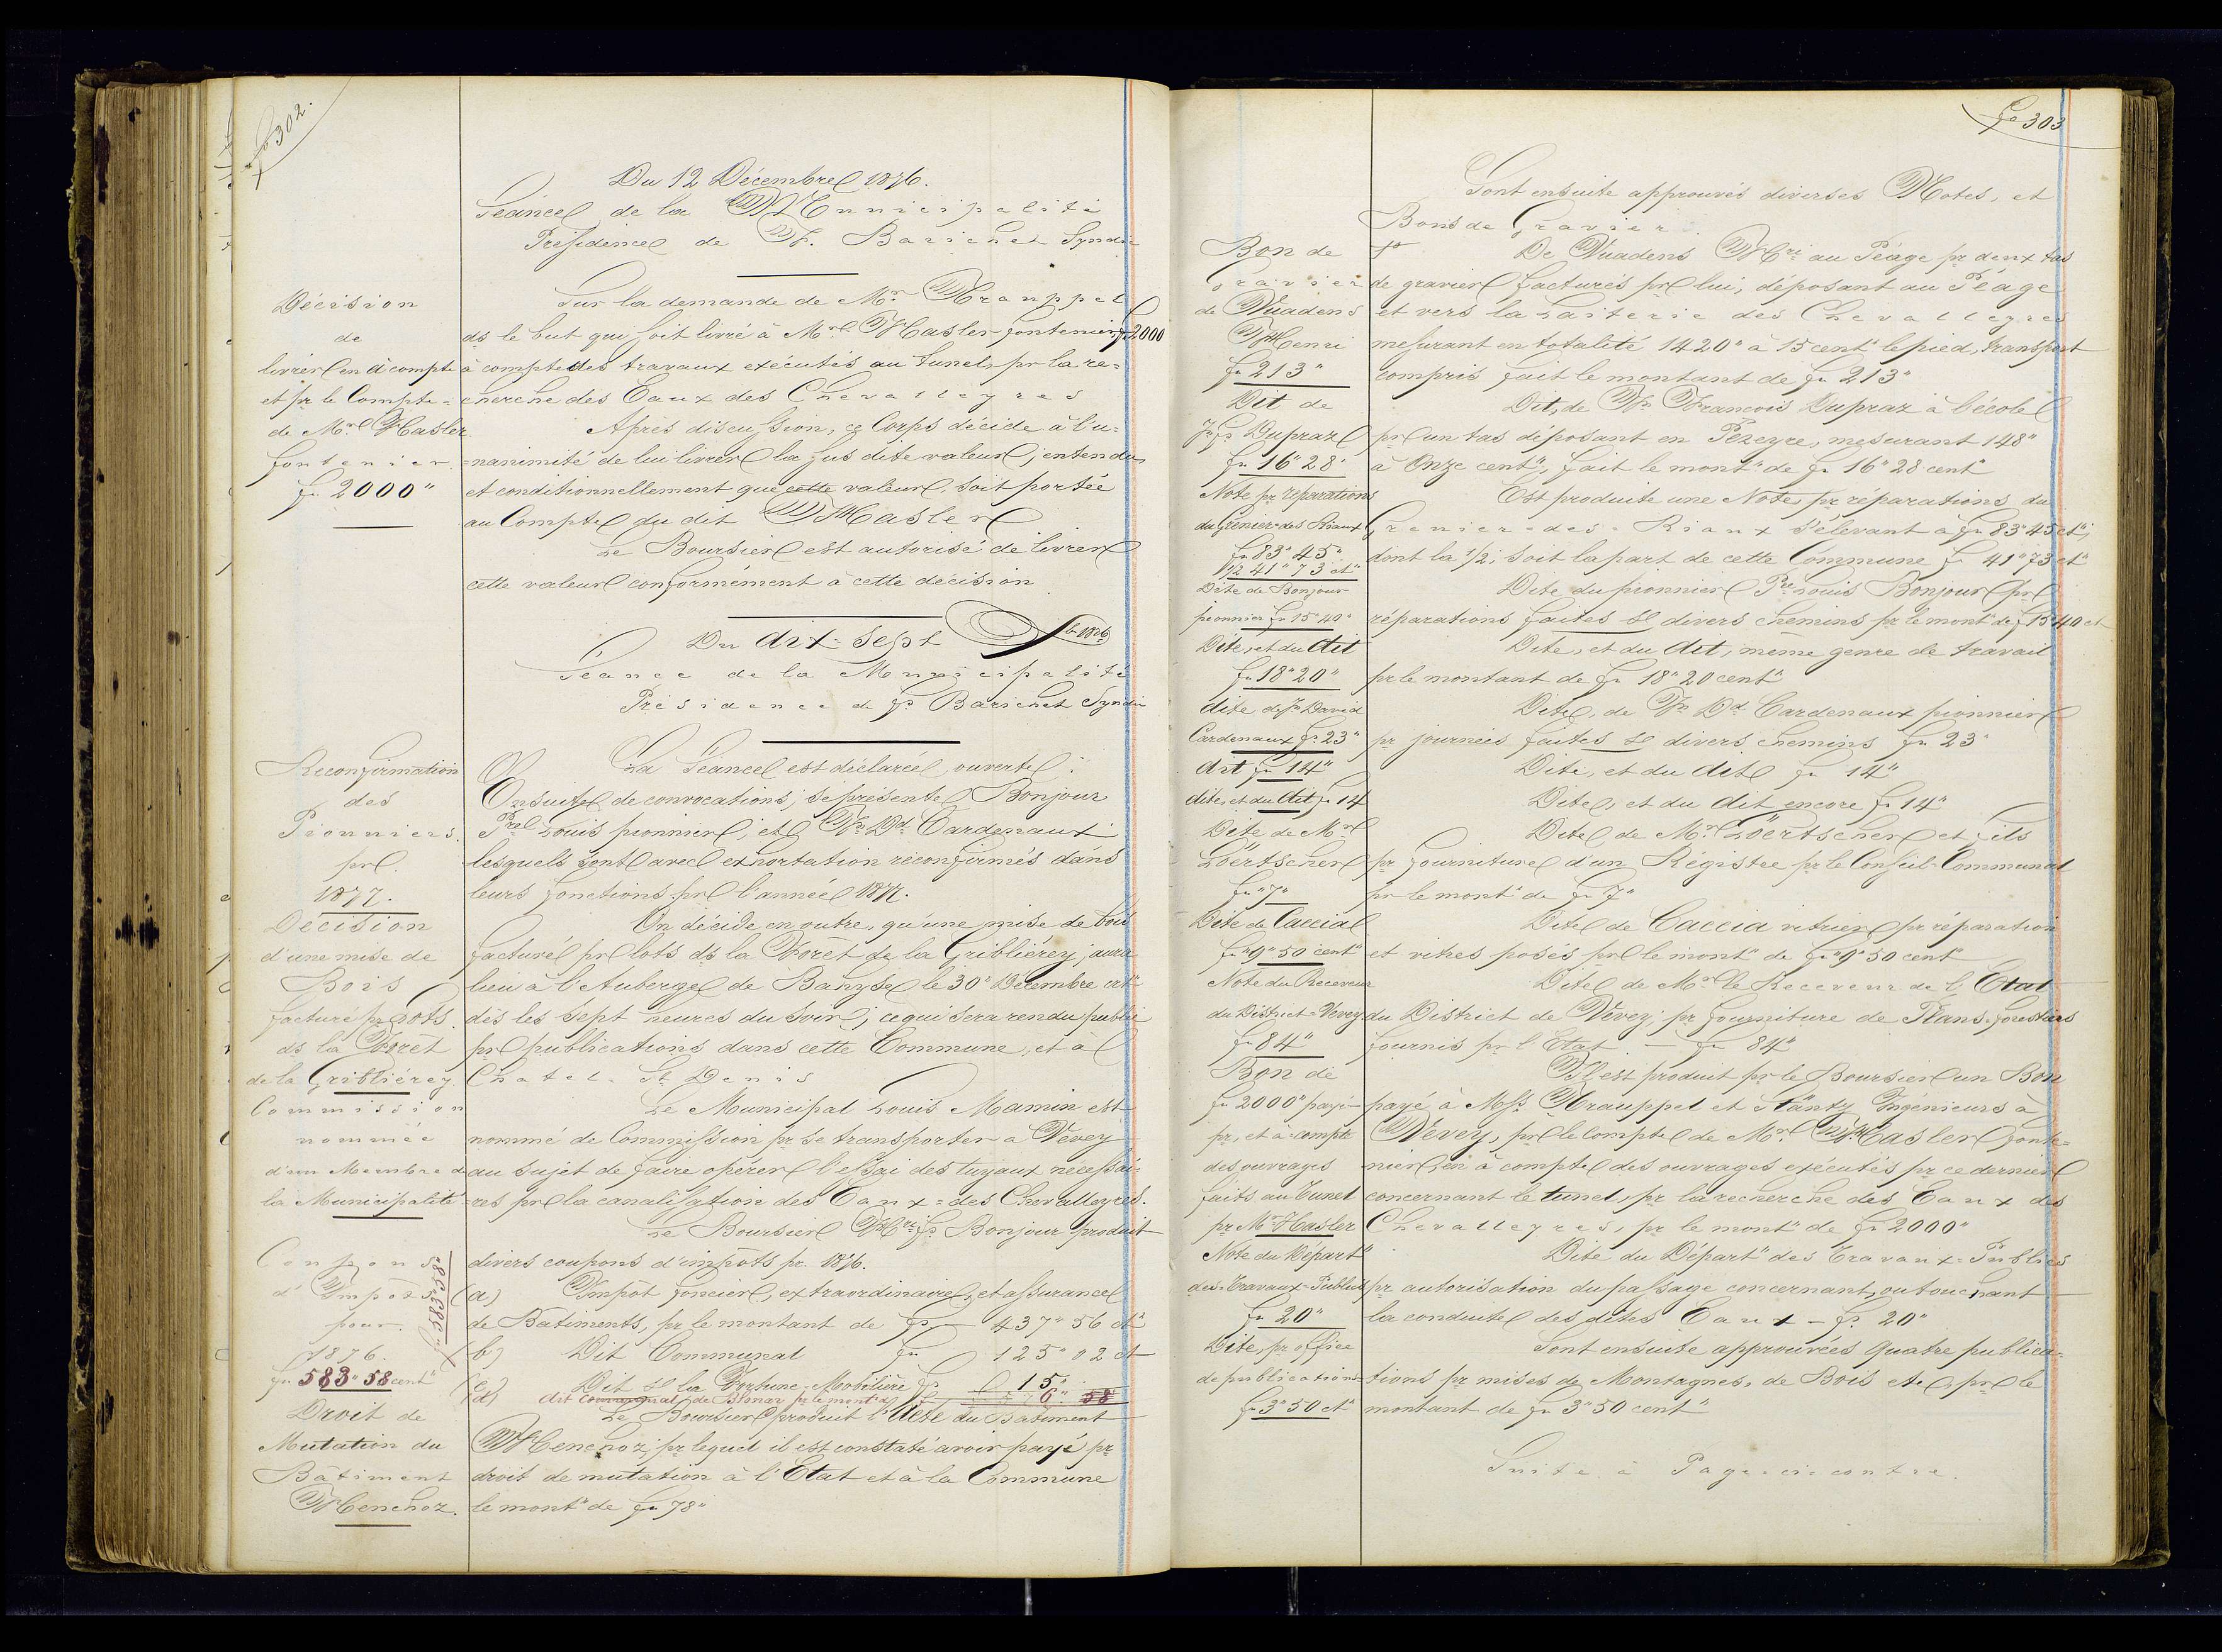 fo 302.
Du 12 Décembre 1876.
Séance de la Municipalité
Présidence de F. Barichet Syndic
Décision
de
livrer en à compte
et pr le Compte=
de Mr. Hasler
fontenier.
fr. 2000"
Sur la demande de Mr. Krauppel
ds le but qui soit livré à Mr. Hasler fontenier fr 2000
à compte des travaux exécutés au tunel, pr la re=
cherche des Eaux des Chevalleyres
Après discussion, ce Corps décide à l'u=
=nanimité de lui livrer la sus dite valeur; entendu,
et conditionnellement que cette valeur, soit portée
au Compte du dit Hasler
Le Boursier est autorisé de livrer
cette valeur conformément à cette décision
Du dix=sept Xbre 1876
Séance de la Municipalité
Présidence de fs Barichet Syndic
Reconfirmation
des
Pionniers.
pr.
1877.
La Séance est déclarée, ouverte:
Ensuite de convocations; se présente Bonjour
Pre Louis pionnier; et Fs Dd Cardenaux
lesquels sont avec exhortation réconfirmés dans
leurs fonctions pr l'année 1877.
Décision
d'une mise de
Bois
facturé pr Lots.
ds la Forêt
de la Gribliérey
On décide en outre, qu'une mise de bois
facturé pr lots ds la Forêt de la Gribliérey, aura
lieu à l'Auberge de Bahyse le 30" Décembre crt"
dès les sept heures du soir; ce qui sera rendu public
pr publications dans cette Commune, et a
Chatel St Denis
Commission
nommée
d'un Membre de
la Municipalité
Le Municipal Louis Mamin est
nommé de Commission pr se transporter à Vevey
au sujet de faire opérer l'essai des tuyaux necessai=
=res pr la canalisation des Eaux=des Chevalleyres.
Le Boursier Hri fs Bonjour produit
Coupons
d'Impôts
pour.
1876.
fr. 583" 58 cent"
583" 58"
divers coupons d'impôts pr. 1876.
(a) Impôt foncier, extraordinaire, et assurance
de Batiments, pr le montant de fr. — 437" 56 ct"
(b) Dit Communal fr 125" 02 ct
(c) Dit sr la Fortune=Mobilière fr 15"
(d) dit Communal de Blonay pr le mont" de fr 6" 58
Droit de
Mutation du
Bâtiment
Henchoz.
Le Boursier produit l'Acte du Batiment
Henchoz; pr lequel il est constaté avoir payé pr
droit de mutation à l'Etat et à la Commune
le mont" de fr 78"
fo 303
Sont ensuite approuvés diverses Notes, et
Bons de Gravier.
Bon de
Gravier
de Vuadens
Henri
fr 213"
De Vuadens Hri au Péage pr deux tas
de gravier facturés pr lui, déposant au Péage
et vers la Laiterie des Chevalleyres
mesurant en totalité 1420" à 15 cent" le pied, transport
compris fait le montant de fr 213"
Dit de
Jn fs Dupraz
fr 16" 28"
Dit, de Fs Francois Dupraz à l'école
pr un tas déposant en Pezeyre, mesurant 148"
à Onze cent", fait le mont" de fr 16" 28 cent"
Note pr réparations
du Grenier=des Riaux
fr 83" 45"
1/2 41" 73 ct"
Est produite une Note, pr réparations du
Grenier=des=Riaux s'élevant à fr 83" 45 ct";
dont la 1/2; soit la part de cette Commune fr 41" 73 ct"
Dite de Bonjour
pionnier fr 15" 40"
Dite du pionnier Pre Louis Bonjour pr
réparations faites sr divers chemins pr le mont" de fr 15" 40 ct
Dite, et du dit
fr 18" 20"
Dite, et du dit, même genre de travail
pr le montant de fr 18" 20 cent"
dite de Fs David
Cardenaux fr. 23"
Dite, de Fs Dd Cardenaux pionnier
pr journées faites sr divers chemins fr 23"
dit fr 14"
Dite, et du dit fr 14"
dite, et du dit fr 14
Dite, et du dit encore fr 14"
Dite de Mr.
Loërtscher
fr "7"
Dite de Mr. Loërtscher et fils
pr fourniture d'un Régistre pr le Conseil=Communal
pr le mont" de fr 7"
Dite de Caccia
fr "9" 50 cent"
Dite de Caccia vitrier pr réparation
et vitres posés pr le mont" de fr "9" 50 cent"
Note du Receveur
du District=Vevey
fr 84"
Dite de Mr. le Receveur de l'Etat
du District de Vevey; pr fourniture de Plans=forestiers
fournis pr l'Etat. — fr 84"
Bon de
fr 2000" payé
pr, et à=compte
des ouvrages
faits au Tunel
pr Mr Hasler
Il est produit pr le Boursier un Bon
payé à Mss. Krauppel et Stänty Ingénieurs à
Vevey, pr le compte de Mr. Hasler fonte=
nier, en à compte des ouvrages exécutés pr ce dernier
concernant le tunel, pr la recherche des Eaux des
Chevalleyres, pr le mont" de fr 2000"
Note du Départ"
des=Travaux=Publics
fr 20"
Dite du Départ" des Travaux=Publics
pr autorisation du passage concernant, ou touchant
la conduite des dites Eaux — fr. 20"
Dite, pr office
de publications
fr 3" 50 ct"
Sont ensuite approuvées quatre publica=
tions pr mises de Montagnes, de Bois etc, pr le
montant de fr 3" 50 cent"
Suite à Page=ci=contre.